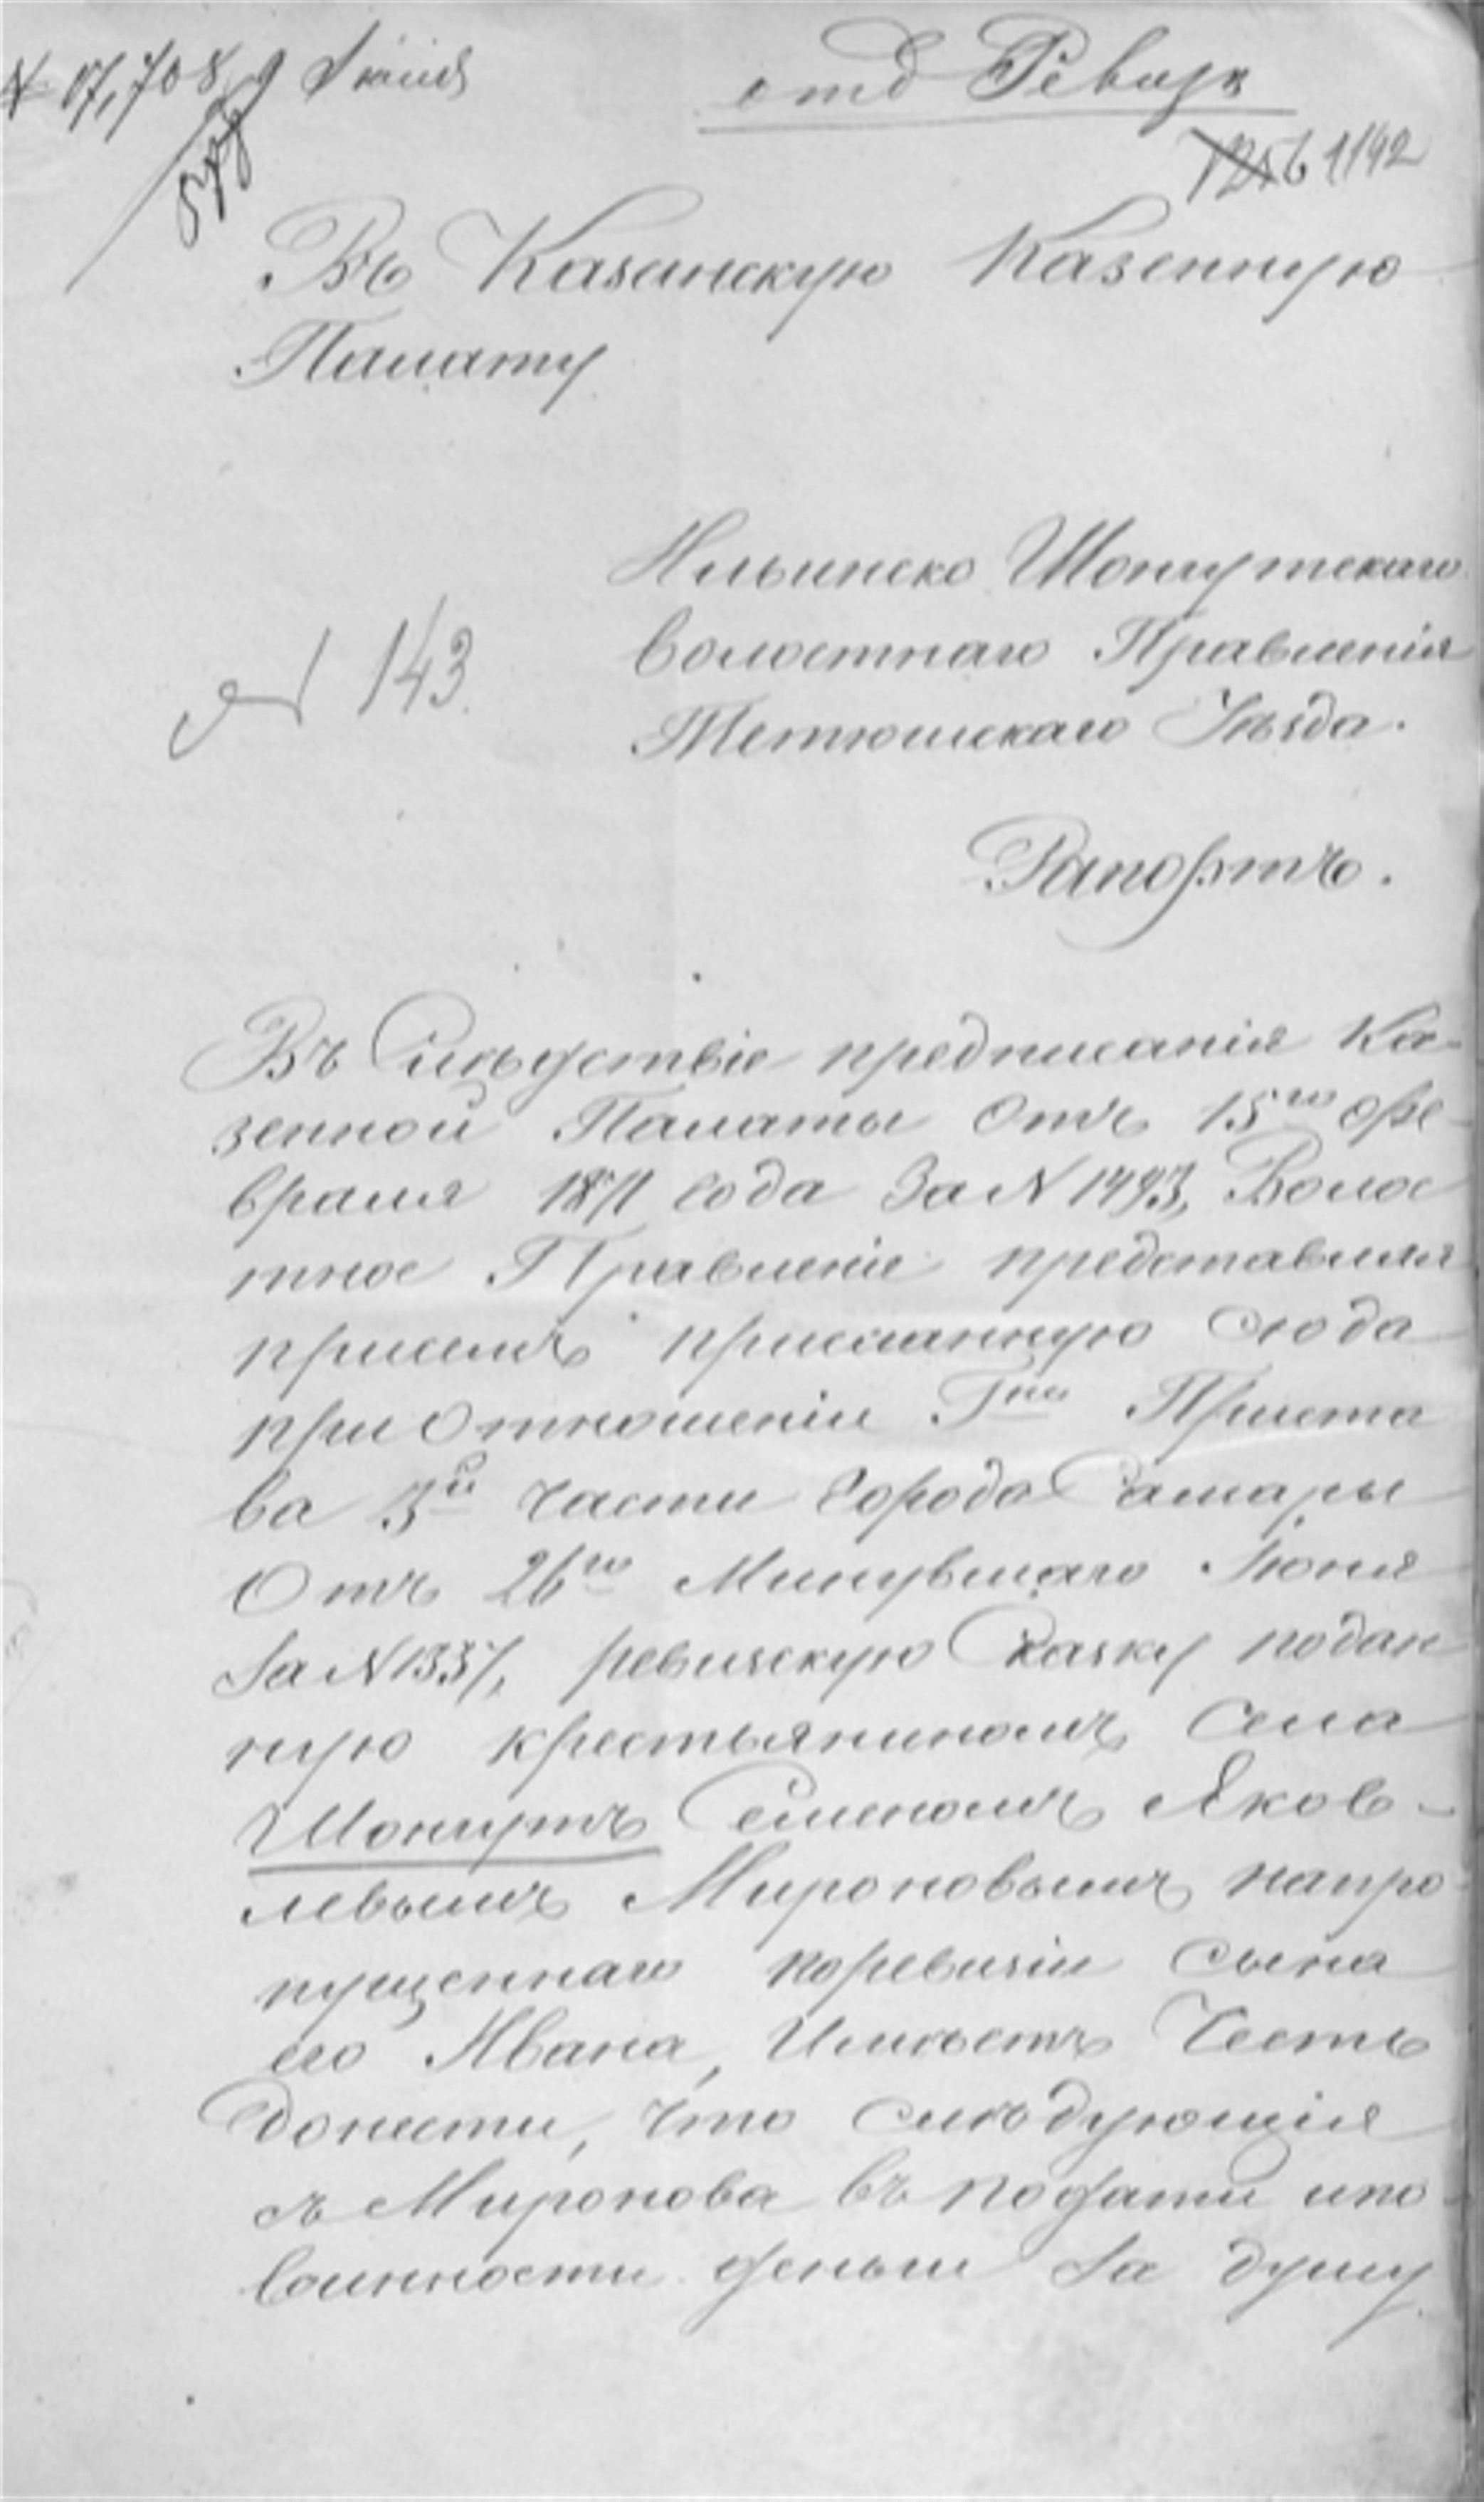 № 17,708 9 Июля
отд Ревиз
1142
Въ Казанскую Казенную
Палату
Ильинско Шонгутскаго
Волостнаго Правленія
Тетюшскаго Уѣзда.
№ 143.
Рапортъ.
Въ Слѣдствіе предписанія Ка-
зенной Палаты Отъ 15го Фе-
враля 1871 года За № 1493, Волос
тное Правленіе представляя
присемъ присланную сюда
при Отношеніи Гна Приста
ва 3й части Города Самары
Отъ 26го Минувшаго Іюня
За № 1337, ревизскую Сказку подан
ную крестьяниномъ Села
Шонгутъ Семеномъ Яков-
левымъ Мироновымъ напро
пущеннаго поревизіи сына
его Ивана, Имѣетъ Честь
Донести, Что слѣдующія
съ Миронова въ подати ипо
винности деньги За душу